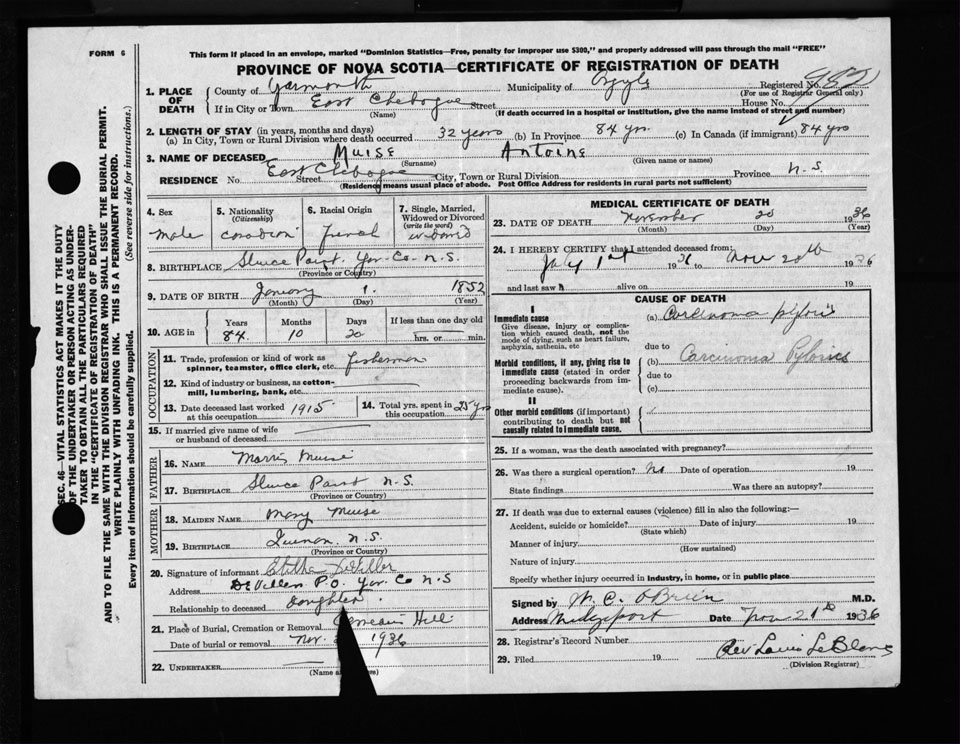 FORM 6
This form if placed in an envelope, marked "Dominion Statistics—Free, penalty for improper use $300," and properly addressed will pass through the mail "FREE"
PROVINCE OF NOVA SCOTIA—CERTIFICATE OF REGISTRATION OF DEATH
1. PLACE OF DEATH
County of Yarmouth Municipality of Argyle Registered No.
(For use of Registrar General only)
If in City or Town East Chebogue Street House No.
(Name) (If death occurred in a hospital or institution, give the name instead of street and number)
2. LENGTH OF STAY (in years, months and days)
(a) In City, Town or Rural Division where death occurred 32 years (b) In Province 84 yrs. (c) In Canada (if immigrant) 84 yrs
3. NAME OF DECEASED Muise Antoine
(Surname) (Given name or names)
RESIDENCE No. East Chebogue Street City, Town or Rural Division Province N.S.
(Residence means usual place of abode. Post Office Address for residents in rural parts not sufficient)
4. Sex male
5. Nationality (Citizenship) canadian
6. Racial Origin french
7. Single, Married, Widowed or Divorced (write the word)
8. BIRTHPLACE Sluce Point Yar. Co. N.S.
(Province or Country)
9. DATE OF BIRTH January 1. 1852
(Month) (Day) (Year)
10. AGE in Years Months Days If less than one day old
84 10 20 hrs. or min.
OCCUPATION
11. Trade, profession or kind of work as spinner, teamster, office clerk, etc. fisherman
12. Kind of industry or business, as cotton-mill, lumbering, bank, etc.
13. Date deceased last worked at this occupation 1915
14. Total yrs. spent in this occupation 25 yrs
15. If married give name of wife or husband of deceased
FATHER
16. NAME Morris Muise
17. BIRTHPLACE Sluce Point N.S.
(Province or Country)
MOTHER
18. MAIDEN NAME Mary Muise
19. BIRTHPLACE Quinan N.S.
(Province or Country)
20. Signature of informant
Address P.O. Yar. Co N.S
Relationship to deceased Daughter.
21. Place of Burial, Cremation or Removal Hill
Date of burial or removal Nov. 1936
22. UNDERTAKER
(Name
MEDICAL CERTIFICATE OF DEATH
23. DATE OF DEATH November 20 1936
(Month) (Day) (Year)
24. I HEREBY CERTIFY that I attended deceased from:
July 1st 1936 to Nov 20th 1936
and last saw h alive on 19
CAUSE OF DEATH
I
Immediate cause
Give disease, injury or complication which caused death, not the mode of dying, such as heart failure, asphyxia, asthenia, etc
(a) Carcinoma
due to
Morbid conditions, if any, giving rise to immediate cause (stated in order proceeding backwards from immediate cause).
(b) Carcinoma Pylorics
due to
(c)
II
Other morbid conditions (if important) contributing to death but not causally related to immediate cause.
25. If a woman, was the death associated with pregnancy?
26. Was there a surgical operation? No Date of operation 19
State findings Was there an autopsy?
27. If death was due to external causes (violence) fill in also the following:—
Accident, suicide or homicide? Date of injury 19
(State which)
Manner of injury
(How sustained)
Nature of injury
Specify whether injury occurred in industry, in home, or in public place
Signed by W. C. O'Brien M.D.
Address Wedgeport Date Nov 21st 1936
28. Registrar's Record Number
29. Filed 19 Rev Louis LeBlanc
(Division Registrar)
SEC. 46—VITAL STATISTICS ACT MAKES IT THE DUTY
OF THE UNDERTAKER OR PERSON ACTING AS UNDER-
TAKER TO OBTAIN ALL THE PARTICULARS REQUIRED
IN THE "CERTIFICATE OF REGISTRATION OF DEATH"
AND TO FILE THE SAME WITH THE DIVISION REGISTRAR WHO SHALL ISSUE THE BURIAL PERMIT.
WRITE PLAINLY WITH UNFADING INK. THIS IS A PERMANENT RECORD.
Every item of information should be carefully supplied. (See reverse side for instructions.)